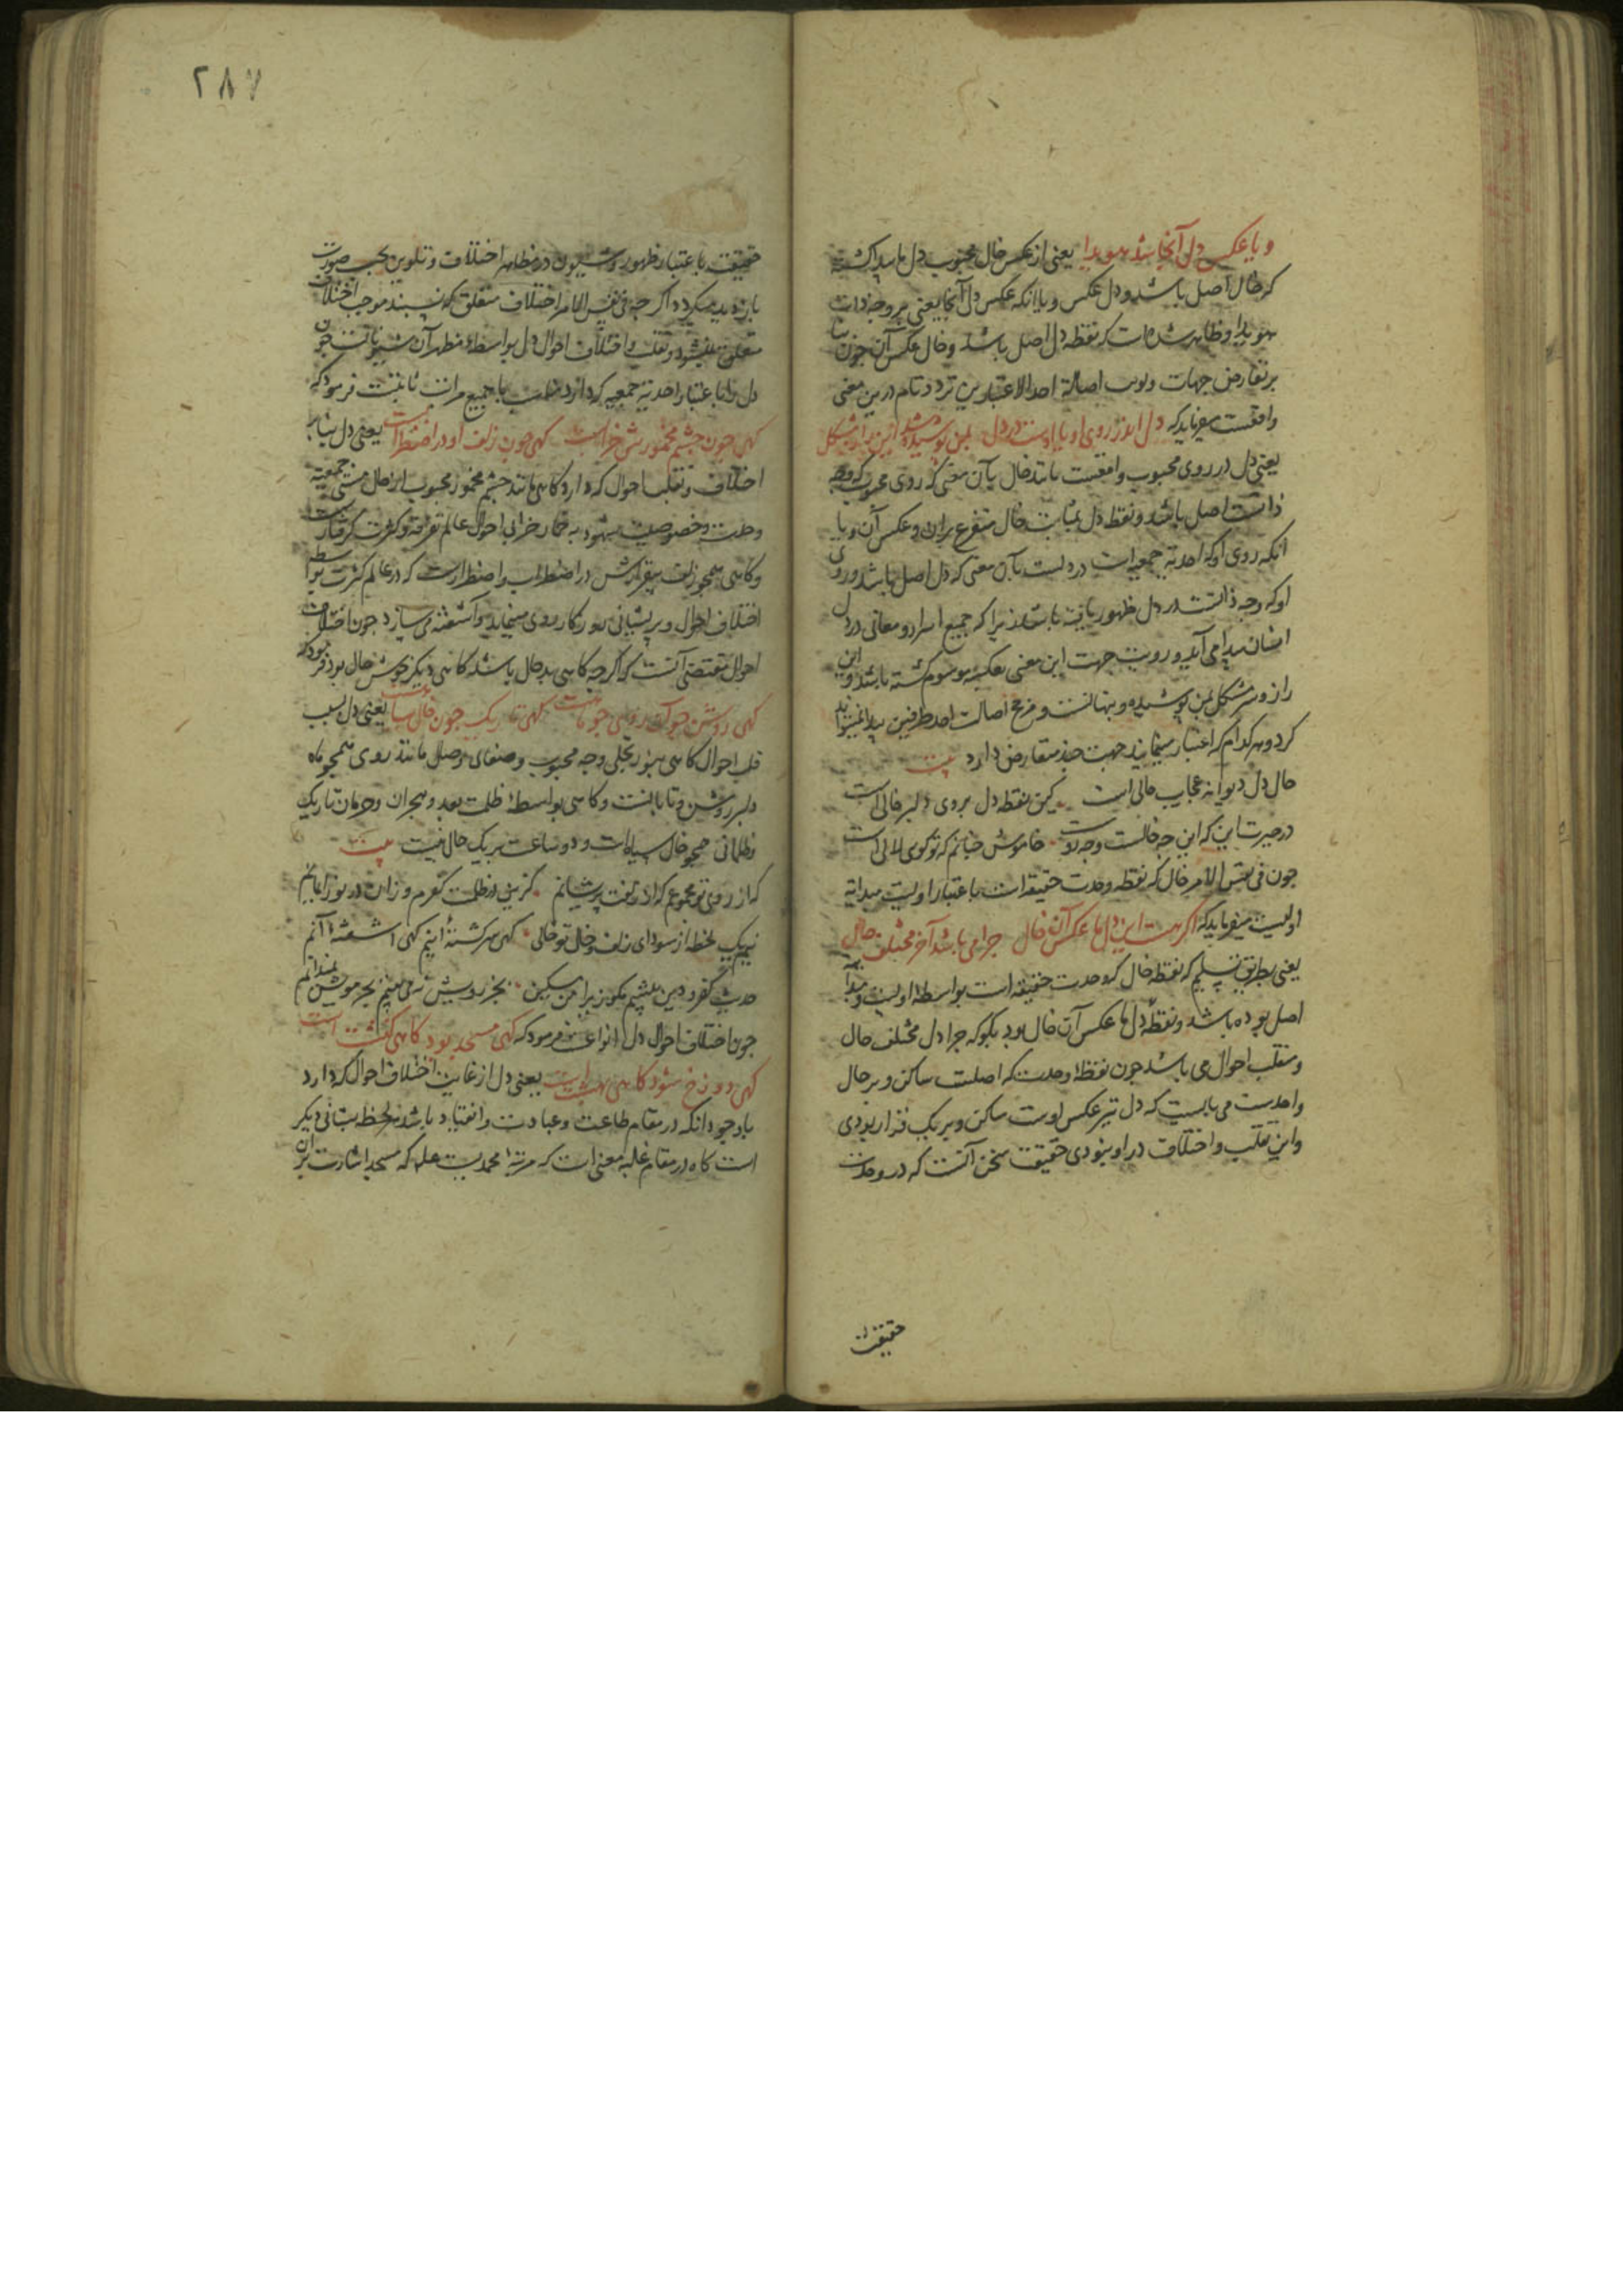 و یا عکس دل آنجا شد هویدا یعنی از عکس خال محبوب دل ما پیدا گشته
که خال اصل باشد و دل عکس و یا انکه عکس دل آنجا یعنی بر وجه ذات
هویدا و ظاهر شده است که نقطه دل اصل باشد و خال عکس آن چون بنا
بر تعارض جهات احد الاعتبارین تردد تام درین معنی
واقعست میفرماید که دل اندر روی او یا اوست در دل بمن پوشیده شد این راز مشکل
یعنی دل در روی محبوب واقعست مانند خال بآن معنی که روی محبوب که وجه
ذاتست اصل باشد و نقطه دل بمثابت خال متفرع بران و عکس آن و یا
انکه روی او که احدیة جمعیة است در دلست بآن معنی که دل اصل باشد و روی
او که وجه ذاتست در دل ظهور یافته باشد زیرا که جمیع اسرار و معانی در دل
انسان پیدا می آید و رویت جهت این معنی بعکس موسوم گشته باشد و این
راز و سر مشکل بمن پوشیده و پنهانست و مرجح اصالت احد طرفین پیدا نمیتواند
کرد و هر کدام که اعتبار مینماید جهت چند متعارض دارد بیت
حال دل دیوانه عجایب حالی است کین نقطه دل بروی دلبر خالی است
در حیرت این که این چه خالست و چه روست خاموش چنانم که تو گویی لالی است
چون فی نفس الامر خال که نقطه وحدت حقیقه است باعتبار اولیت مبداءیة
اولیست میفرماید که اگر هست این دل ما عکس آن خال چرا می باشد آخر مختلف حال
یعنی بطریق تسلیم که نقطه خال که وحدت حقیقه است بواسطهٔ اولیت و مبدا
اصل بوده باشد و نقطهٔ دل ما عکس آن خال بود بگو که چرا دل مختلف حال
و منقلب احوال می باشد چون نقطهٔ وحدت که اصلست ساکن و بر حال
واحدست می بایست که دل نیز عکس اوست ساکن و بر یک قرار بودی
و این تقلب و اختلاف در او نبودی حقیقت سخن آنست که در وحدت
حقیقت
۲۸۷
حقیقت باعتبار ظهور و شیون در مظاهر اختلاف و تلوین بحسب صورت
پدید میگردد اگرچه فی نفس الامر اختلاف متعلق که نسبند موجب اختلاف
متعلق نمیشود و تقلب و اختلاف احوال دل بواسطهٔ مظهر آن شیوناتست چون
دل را باعتبار احدیة جمعیه که دارد با جمیع مراتب ثابتست فرمود که
گهی چون چشم مخمورش خرابست گهی چون زلف او در اضطرابست یعنی دل بنابر
اختلاف و تقلب احوال که دارد گاهی مانند چشم مخمور محبوب از حال مستی جمعیة
وحدت و خصوصیت شهود به خمار خرابی احوال عالم تفرقه و کثرت گرفتارست
و گاهی همچو زلف بیقرارش در اضطراب و اضطرارست که در عالم کثرت بواسطه
اختلاف احوال و پریشانی روزگار روی مینماید و آشفته می سازد چون اختلاف
احوال مقتضی آنست که اگرچه گاهی بدحال باشد گاهی دیگر خوش حال بود فرمود که
گهی روشن چو آن روی چو ماهست گهی تاریک چون خال سیاهست یعنی دل بسبب
قلب احوال گاهی بنور تجلی وجه محبوب و صفای وصل مانند روی همچو ماه
دلبر روشن و تابانست و گاهی بواسطهٔ ظلمت بعد و هجران و حرمان تاریک
و ظلمانی همچو خال سیاهست و دو ساعت بر یک حال نیست بیت
که از روی تو مجموعم که از زلفت پریشانم کزین در ظلمت کفرم و زان در نور ایمانم
نیم یک لحظه از سودای زلف و خال تو خالی گهی سرگشتهٔ اینم گهی آشفتهٔ آنم
حدیث کفر و دین پیشم مگو زیرا من مسکین بجز رویش نمی بینم بجز مویش نمیدانم
چون اختلاف احوال دل انواع فرمود که گهی مسجد بود گاهی کنشت است
گهی دوزخ شود گاهی بهشت است یعنی دل از غایت اختلاف احوال که دارد
باوجود انکه در مقام طاعت و عبادت و انقیاد باشد هر لحظه بشانی دیگر
است گاه در مقام غلبه معنی است که مرتبهٔ محمدیست علم که مسجد اشارت بر آن